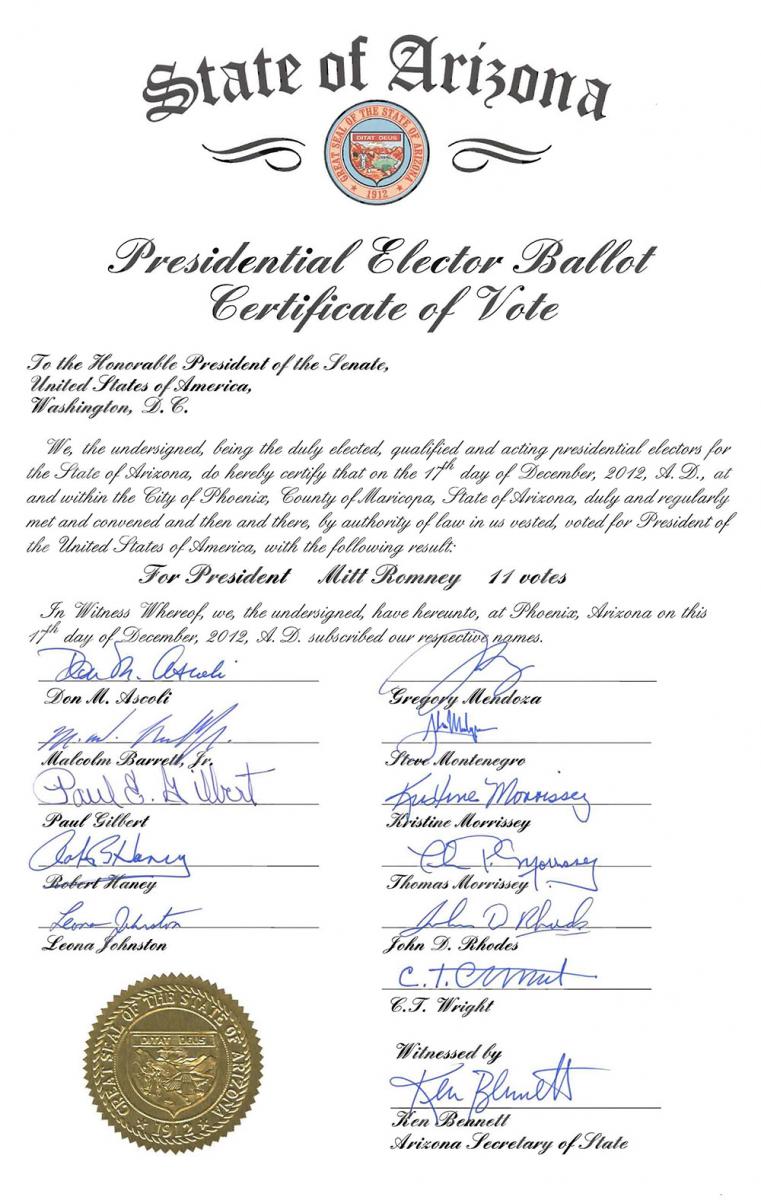 State of Arizona
GREAT SEAL OF THE STATE OF ARIZONA
DITAT DEUS
1912
Presidential Elector Ballot
Certificate of Vote
To the Honorable President of the Senate,
United States of America,
Washington, D. C.
We, the undersigned, being the duly elected, qualified and acting presidential electors for
the State of Arizona, do hereby certify that on the 17th day of December, 2012, A. D., at
and within the City of Phoenix, County of Maricopa, State of Arizona, duly and regularly
met and convened and then and there, by authority of law in us vested, voted for President of
the United States of America, with the following result:
For President Mitt Romney 11 votes
In Witness Whereof, we, the undersigned, have hereunto, at Phoenix, Arizona on this
17th day of December, 2012, A. D. subscribed our respective names.
Don M. Ascoli
Don M. Ascoli
Malcolm Barrett, Jr.
Paul E. Gilbert
Paul Gilbert
Robert Haney
Leona Johnston
Leona Johnston
Gregory Mendoza
Steve Montenegro
Kristine Morrissey
Kristine Morrissey
Thomas Morrissey
John D. Rhodes
John D. Rhodes
C.T. Wright
Witnessed by
Ken Bennett
Ken Bennett
Arizona Secretary of State
GREAT SEAL OF THE STATE OF ARIZONA
DITAT DEUS
1912